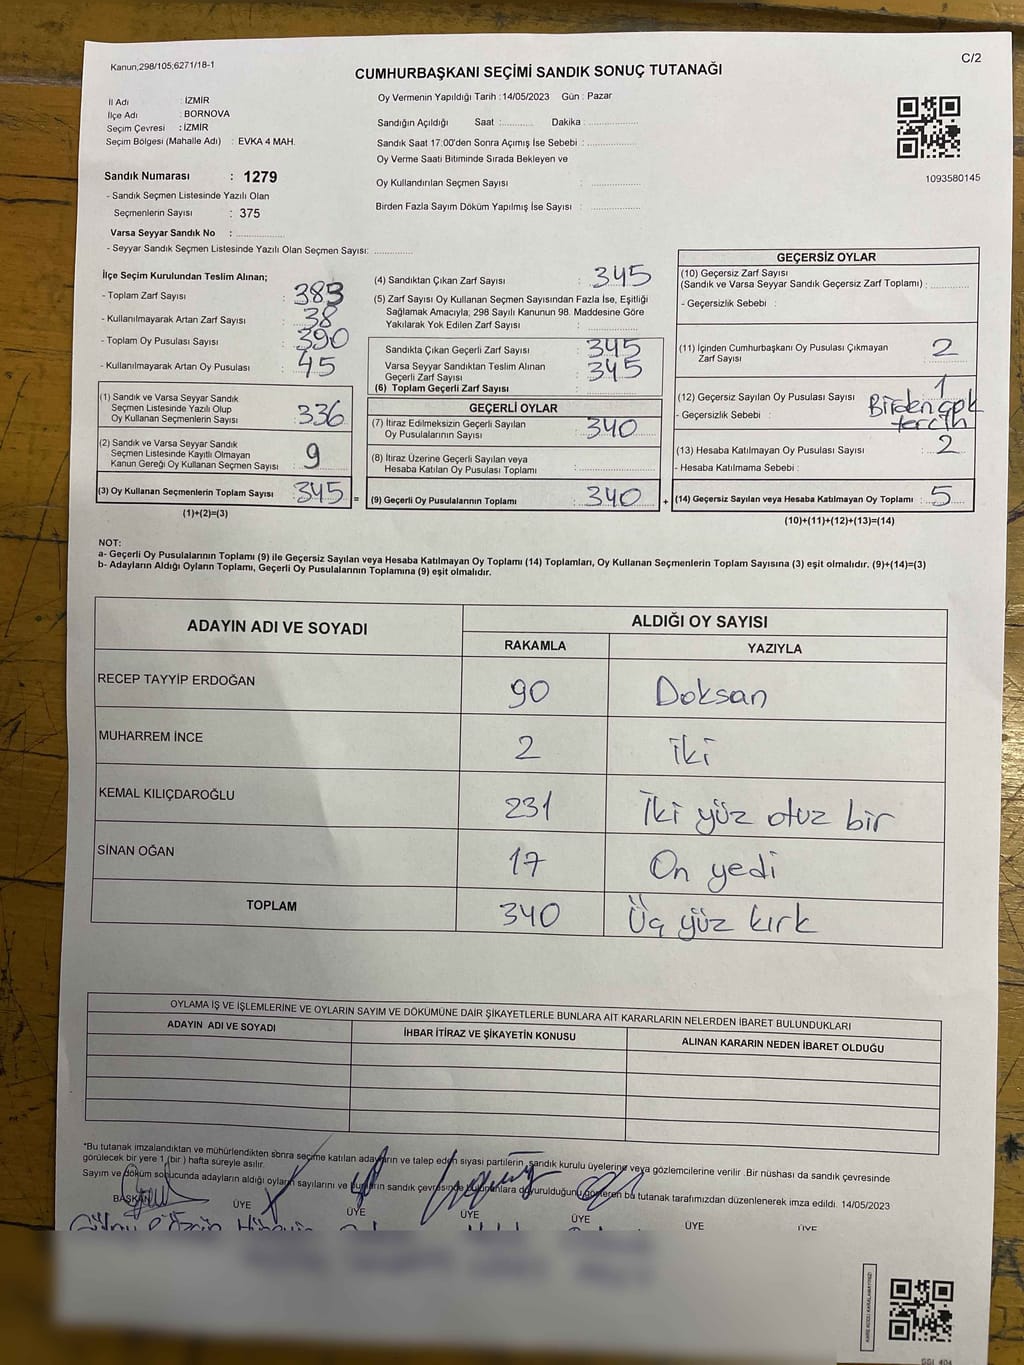 Kanun;298/105;6271/18-1
C/2
CUMHURBAŞKANI SEÇİMİ SANDIK SONUÇ TUTANAĞI
İl Adı : İZMİR
İlçe Adı : BORNOVA
Seçim Çevresi : İZMİR
Seçim Bölgesi (Mahalle Adı) : EVKA 4 MAH.
Oy Vermenin Yapıldığı Tarih :14/05/2023 Gün : Pazar
Sandığın Açıldığı Saat :.......... Dakika :................
Sandık Saat 17:00'den Sonra Açımış İse Sebebi :..............
Oy Verme Saati Bitiminde Sırada Bekleyen ve
Oy Kullandırılan Seçmen Sayısı : ..............
Birden Fazla Sayım Döküm Yapılmış İse Sayısı : ..............
1093580145
Sandık Numarası : 1279
- Sandık Seçmen Listesinde Yazılı Olan
Seçmenlerin Sayısı : 375
Varsa Seyyar Sandık No : ..............
- Seyyar Sandık Seçmen Listesinde Yazılı Olan Seçmen Sayısı: ............
İlçe Seçim Kurulundan Teslim Alınan;
- Toplam Zarf Sayısı : 383
- Kullanılmayarak Artan Zarf Sayısı : 38
- Toplam Oy Pusulası Sayısı : 390
- Kullanılmayarak Artan Oy Pusulası : 45
(1) Sandık ve Varsa Seyyar Sandık
Seçmen Listesinde Yazılı Olup
Oy Kullanan Seçmenlerin Sayısı : 336
(2) Sandık ve Varsa Seyyar Sandık
Seçmen Listesinde Kayıtlı Olmayan
Kanun Gereği Oy Kullanan Seçmen Sayısı : 9
(3) Oy Kullanan Seçmenlerin Toplam Sayısı : 345 =
(1)+(2)=(3)
(4) Sandıktan Çıkan Zarf Sayısı : 345
(5) Zarf Sayısı Oy Kullanan Seçmen Sayısından Fazla İse, Eşitliği
Sağlamak Amacıyla; 298 Sayılı Kanunun 98. Maddesine Göre
Yakılarak Yok Edilen Zarf Sayısı : ..............
Sandıkta Çıkan Geçerli Zarf Sayısı : 345
Varsa Seyyar Sandıktan Teslim Alınan
Geçerli Zarf Sayısı : 345
(6) Toplam Geçerli Zarf Sayısı :
GEÇERLİ OYLAR
(7) İtiraz Edilmeksizin Geçerli Sayılan
Oy Pusulalarının Sayısı : 340
(8) İtiraz Üzerine Geçerli Sayılan veya
Hesaba Katılan Oy Pusulası Toplamı :..............
(9) Geçerli Oy Pusulalarının Toplamı : 340 +
GEÇERSİZ OYLAR
(10) Geçersiz Zarf Sayısı
(Sandık ve Varsa Seyyar Sandık Geçersiz Zarf Toplamı) : ............
- Geçersizlik Sebebi :
(11) İçinden Cumhurbaşkanı Oy Pusulası Çıkmayan
Zarf Sayısı : 2
(12) Geçersiz Sayılan Oy Pusulası Sayısı : 1
- Geçersizlik Sebebi : Birden çok
tercih
(13) Hesaba Katılmayan Oy Pusulası Sayısı : 2
- Hesaba Katılmama Sebebi :
(14) Geçersiz Sayılan veya Hesaba Katılmayan Oy Toplamı : 5
(10)+(11)+(12)+(13)=(14)
NOT:
a- Geçerli Oy Pusulalarının Toplamı (9) ile Geçersiz Sayılan veya Hesaba Katılmayan Oy Toplamı (14) Toplamları, Oy Kullanan Seçmenlerin Toplam Sayısına (3) eşit olmalıdır. (9)+(14)=(3)
b- Adayların Aldığı Oyların Toplamı, Geçerli Oy Pusulalarının Toplamına (9) eşit olmalıdır.
ADAYIN ADI VE SOYADI
ALDIĞI OY SAYISI
RAKAMLA YAZIYLA
RECEP TAYYİP ERDOĞAN 90 Doksan
MUHARREM İNCE 2 iki
KEMAL KILIÇDAROĞLU 231 İki yüz otuz bir
SİNAN OĞAN 17 On yedi
TOPLAM 340 Üç yüz kırk
OYLAMA İŞ VE İŞLEMLERİNE VE OYLARIN SAYIM VE DÖKÜMÜNE DAİR ŞİKAYETLERLE BUNLARA AİT KARARLARIN NELERDEN İBARET BULUNDUKLARI
ADAYIN ADI VE SOYADI İHBAR İTİRAZ VE ŞİKAYETİN KONUSU ALINAN KARARIN NEDEN İBARET OLDUĞU
*Bu tutanak imzalandıktan ve mühürlendikten sonra seçime katılan adayların ve talep eden siyasi partilerin, sandık kurulu üyelerine veya gözlemcilerine verilir. Bir nüshası da sandık çevresinde
görülecek bir yere 1 (bir ) hafta süreyle asılır.
Sayım ve döküm sonucunda adayların aldığı oyların sayılarını ve bunların sandık çevresinde bulunanlara duyurulduğunu gösteren bu tutanak tarafımızdan düzenlenerek imza edildi. 14/05/2023
BAŞKAN ÜYE ÜYE ÜYE ÜYE ÜYE ÜYE